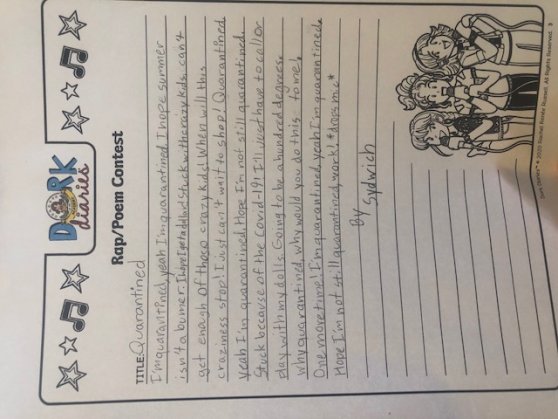 DORK
diaries
Rap/Poem Contest
TITLE: Quarantined
I'm quarantined, yeah I'm quarantined. I hope summer
isn't a bumer. I hope I get a dollar. Stuck with crazy kids, can't
get enagh of those crazy kids! When will this
craziness stop! I just can't wait to shop! Quarantined
yeah I'm quarantined. Hope I'm not still quarantined.
Stuck because of the Covid-19! I'll just have to call or
play with my dolls. Going to be a hundred degrees.
why quarantined, why would you do this to me!
One more time! I'm quarantined, yeah I'm quarantined.
Hope I'm not still quarantined, work! *drops mic*
By
Sydwich
Dork Diaries ® © 2020 Rachel Renée Russell. All Rights Reserved. 3